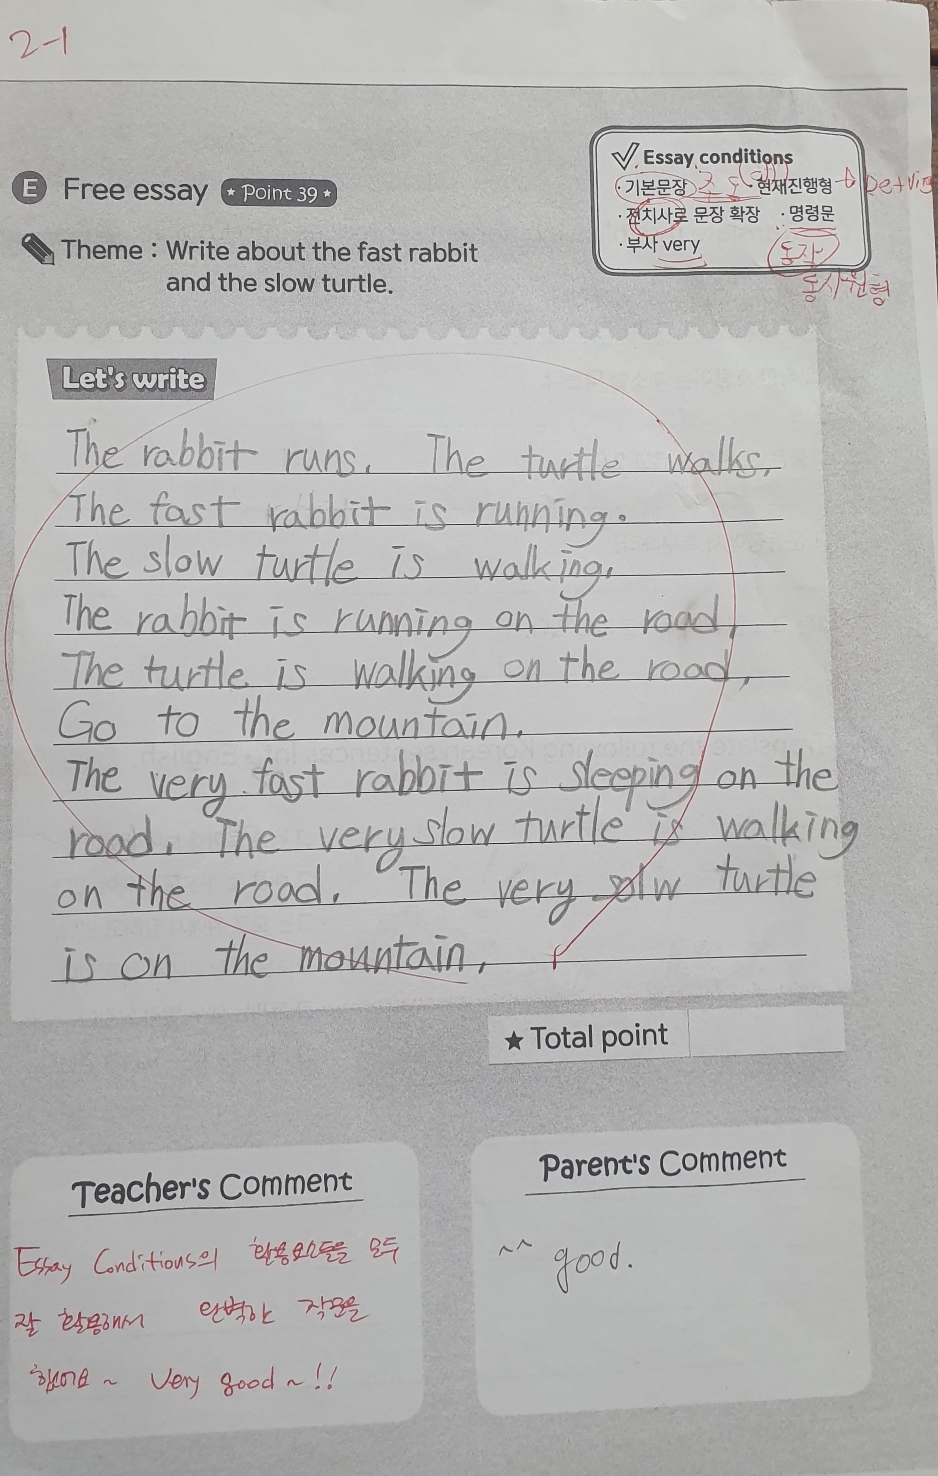 2-1
Essay conditions
· 기본문장 주 동 · 현재진행형 → be+Ving
E Free essay * Point 39 *
· 전치사로 문장 확장 · 명령문
Theme : Write about the fast rabbit
· 부사 very 동작
and the slow turtle.
동사원형
Let's write
The rabbit runs. The turtle walks.
The fast rabbit is running.
The slow turtle is walking.
The rabbit is running on the road.
The turtle is walking on the road.
Go to the mountain.
The very fast rabbit is sleeping on the
road. The very slow turtle is walking
on the road. The very solw turtle
is on the mountain.
★ Total point
Teacher's Comment
Essay Conditions의 활용요소들을 모두
잘 활용해서 완벽한 작문을
했어요~ Very good~!!
Parent's Comment
^^ good.